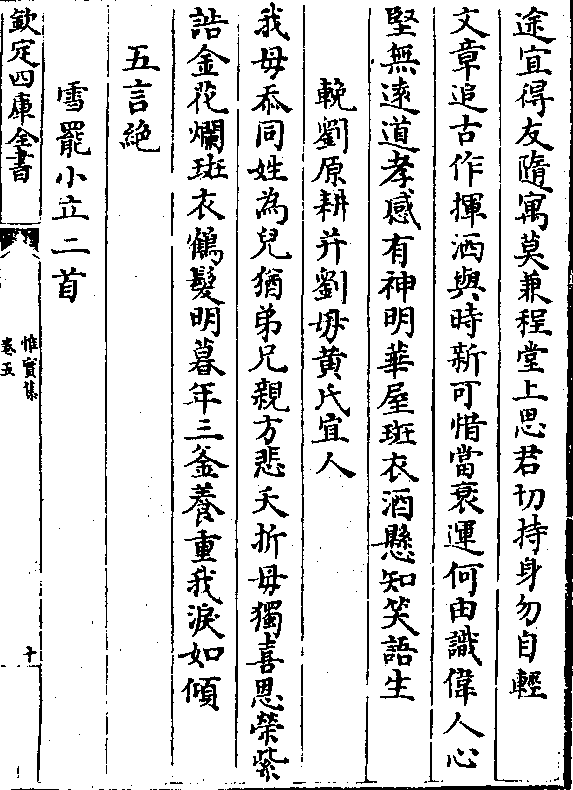 途宜得友隨寓莫兼程堂上思君切持身勿自輕
文章追古作揮洒與時新可惜當衰運何由識偉人心
堅無遠道孝感有神明華屋班衣酒懸知笑語生
輓劉原耕并劉母黄氏宜人
我母忝同姓為兒猶弟兄親方悲夭折母獨喜恩榮紫
誥金花爛斑衣鶴髪明暮年三釜養重我淚如傾
五言絶
雪罷小立二首
欽定四庫全書
惟實集
卷五
十